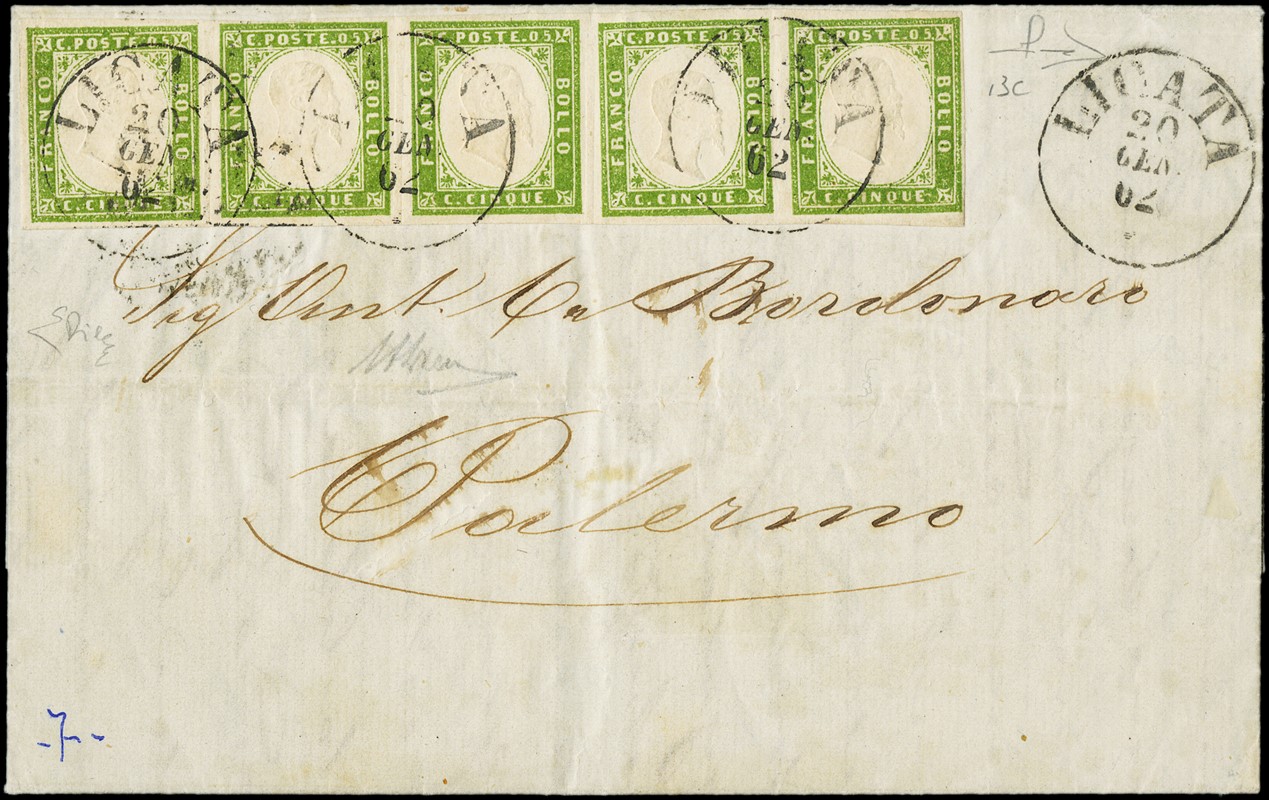 C. POSTE. 05 C. POSTE. 05 C. POSTE. 05 C. POSTE. 05 C. POSTE. 05
FRANCO BOLLO FRANCO BOLLO FRANCO BOLLO FRANCO BOLLO FRANCO BOLLO
C. CINQUE C. CINQUE C. CINQUE C. CINQUE C. CINQUE
LICATA
20
GEN
62
GEN
62
GEN
62
LICATA
20
GEN
62
13C
Sig Ant. Bordonaro
Palermo
-7-